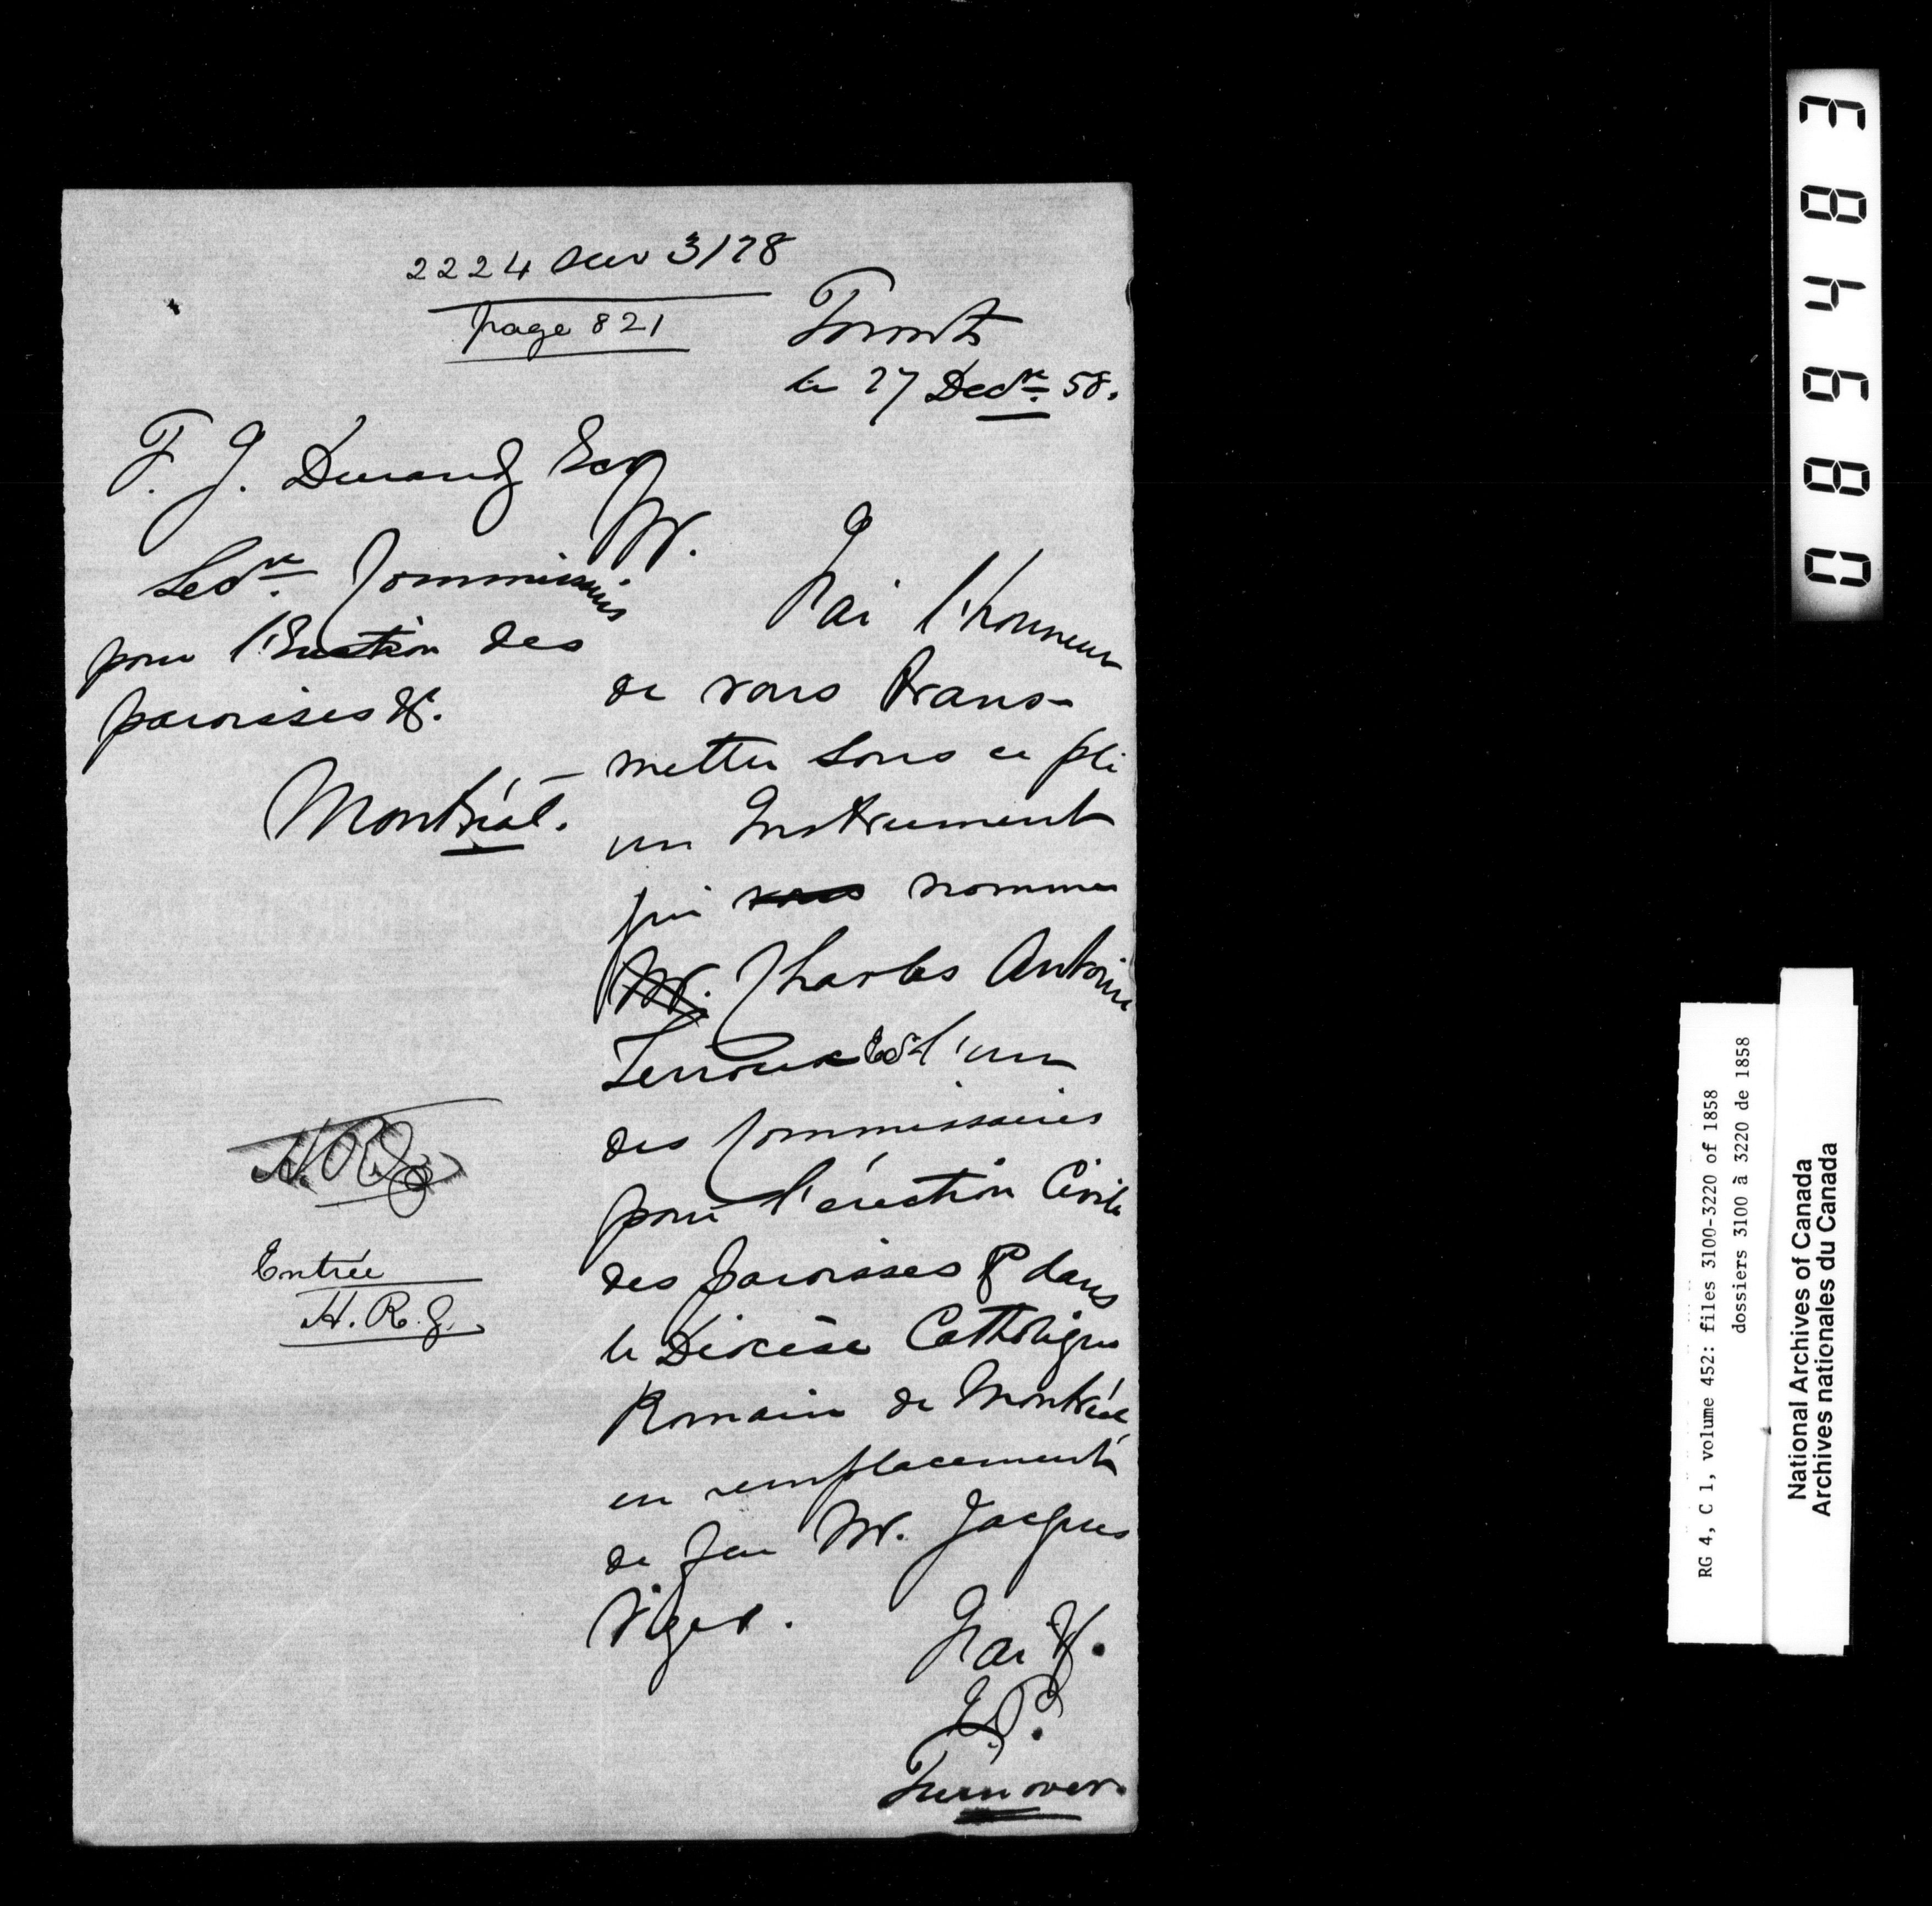 2224 sur 3178
page 821
Toronto
le 27 Decre 58.
F. J. Durand Ecr
Secre Commissaires
pour l'Erection des
paroisses &c.
Montréal.
Mr.
J'ai l'honneur
de vous trans-
mettre sous ce pli
un Instrument
qui vous nomme
Mr. Charles Antoine
Terroux Ecr l'un
des Commissaires
pour l'érection Civile
des paroisses &c dans
le Diocèse Catholique
Romain de Montréal
en remplacement
de feu Mr. Jacques
Viger.
J'ai &c.
Turn over.
Entrée
H. R. G.
0 8 9 4 8 3
RG 4, C 1, volume 452: files 3100-3220 of 1858
dossiers 3100 à 3220 de 1858
National Archives of Canada
Archives nationales du Canada